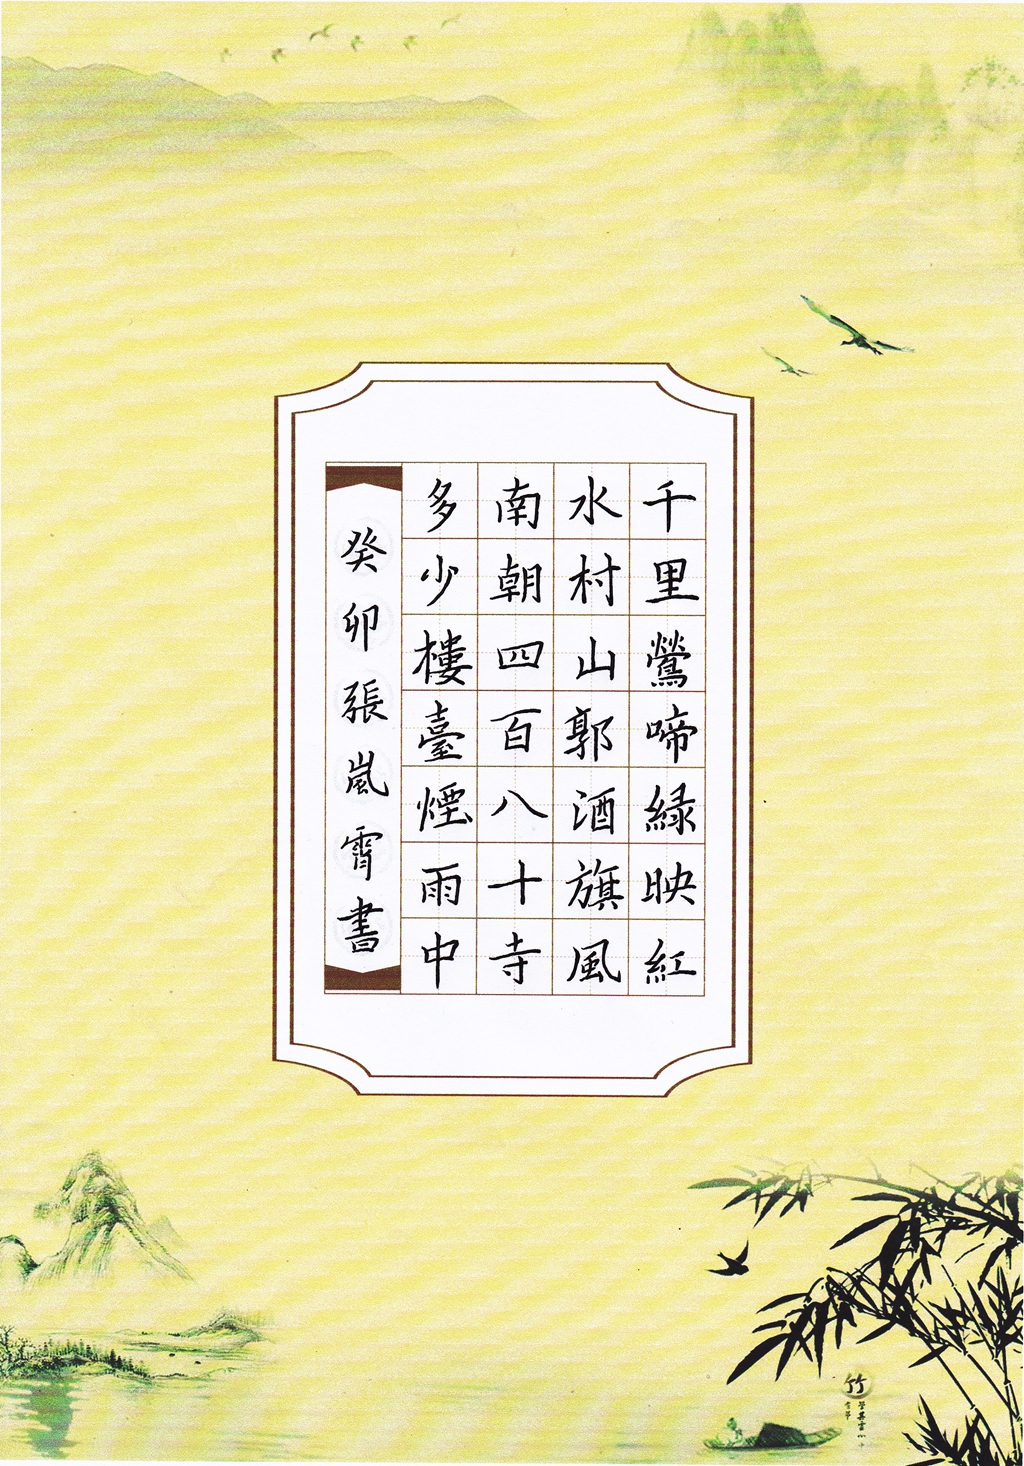 千里鶯啼緑映紅
水村山郭酒旗風
南朝四百八十寺
多少樓臺煙雨中
癸卯張嵐霄書
竹